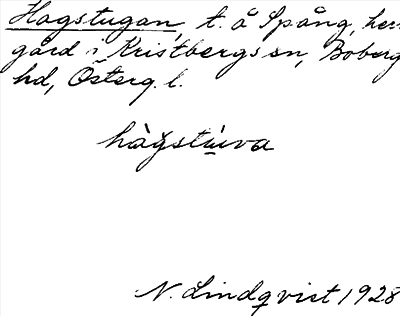 Hagstugan, t. å Spång, herr
gård i Kristbergs sn, Boberg
hd, Österg. l.
hàǥstùva
N. Lindqvist 1928